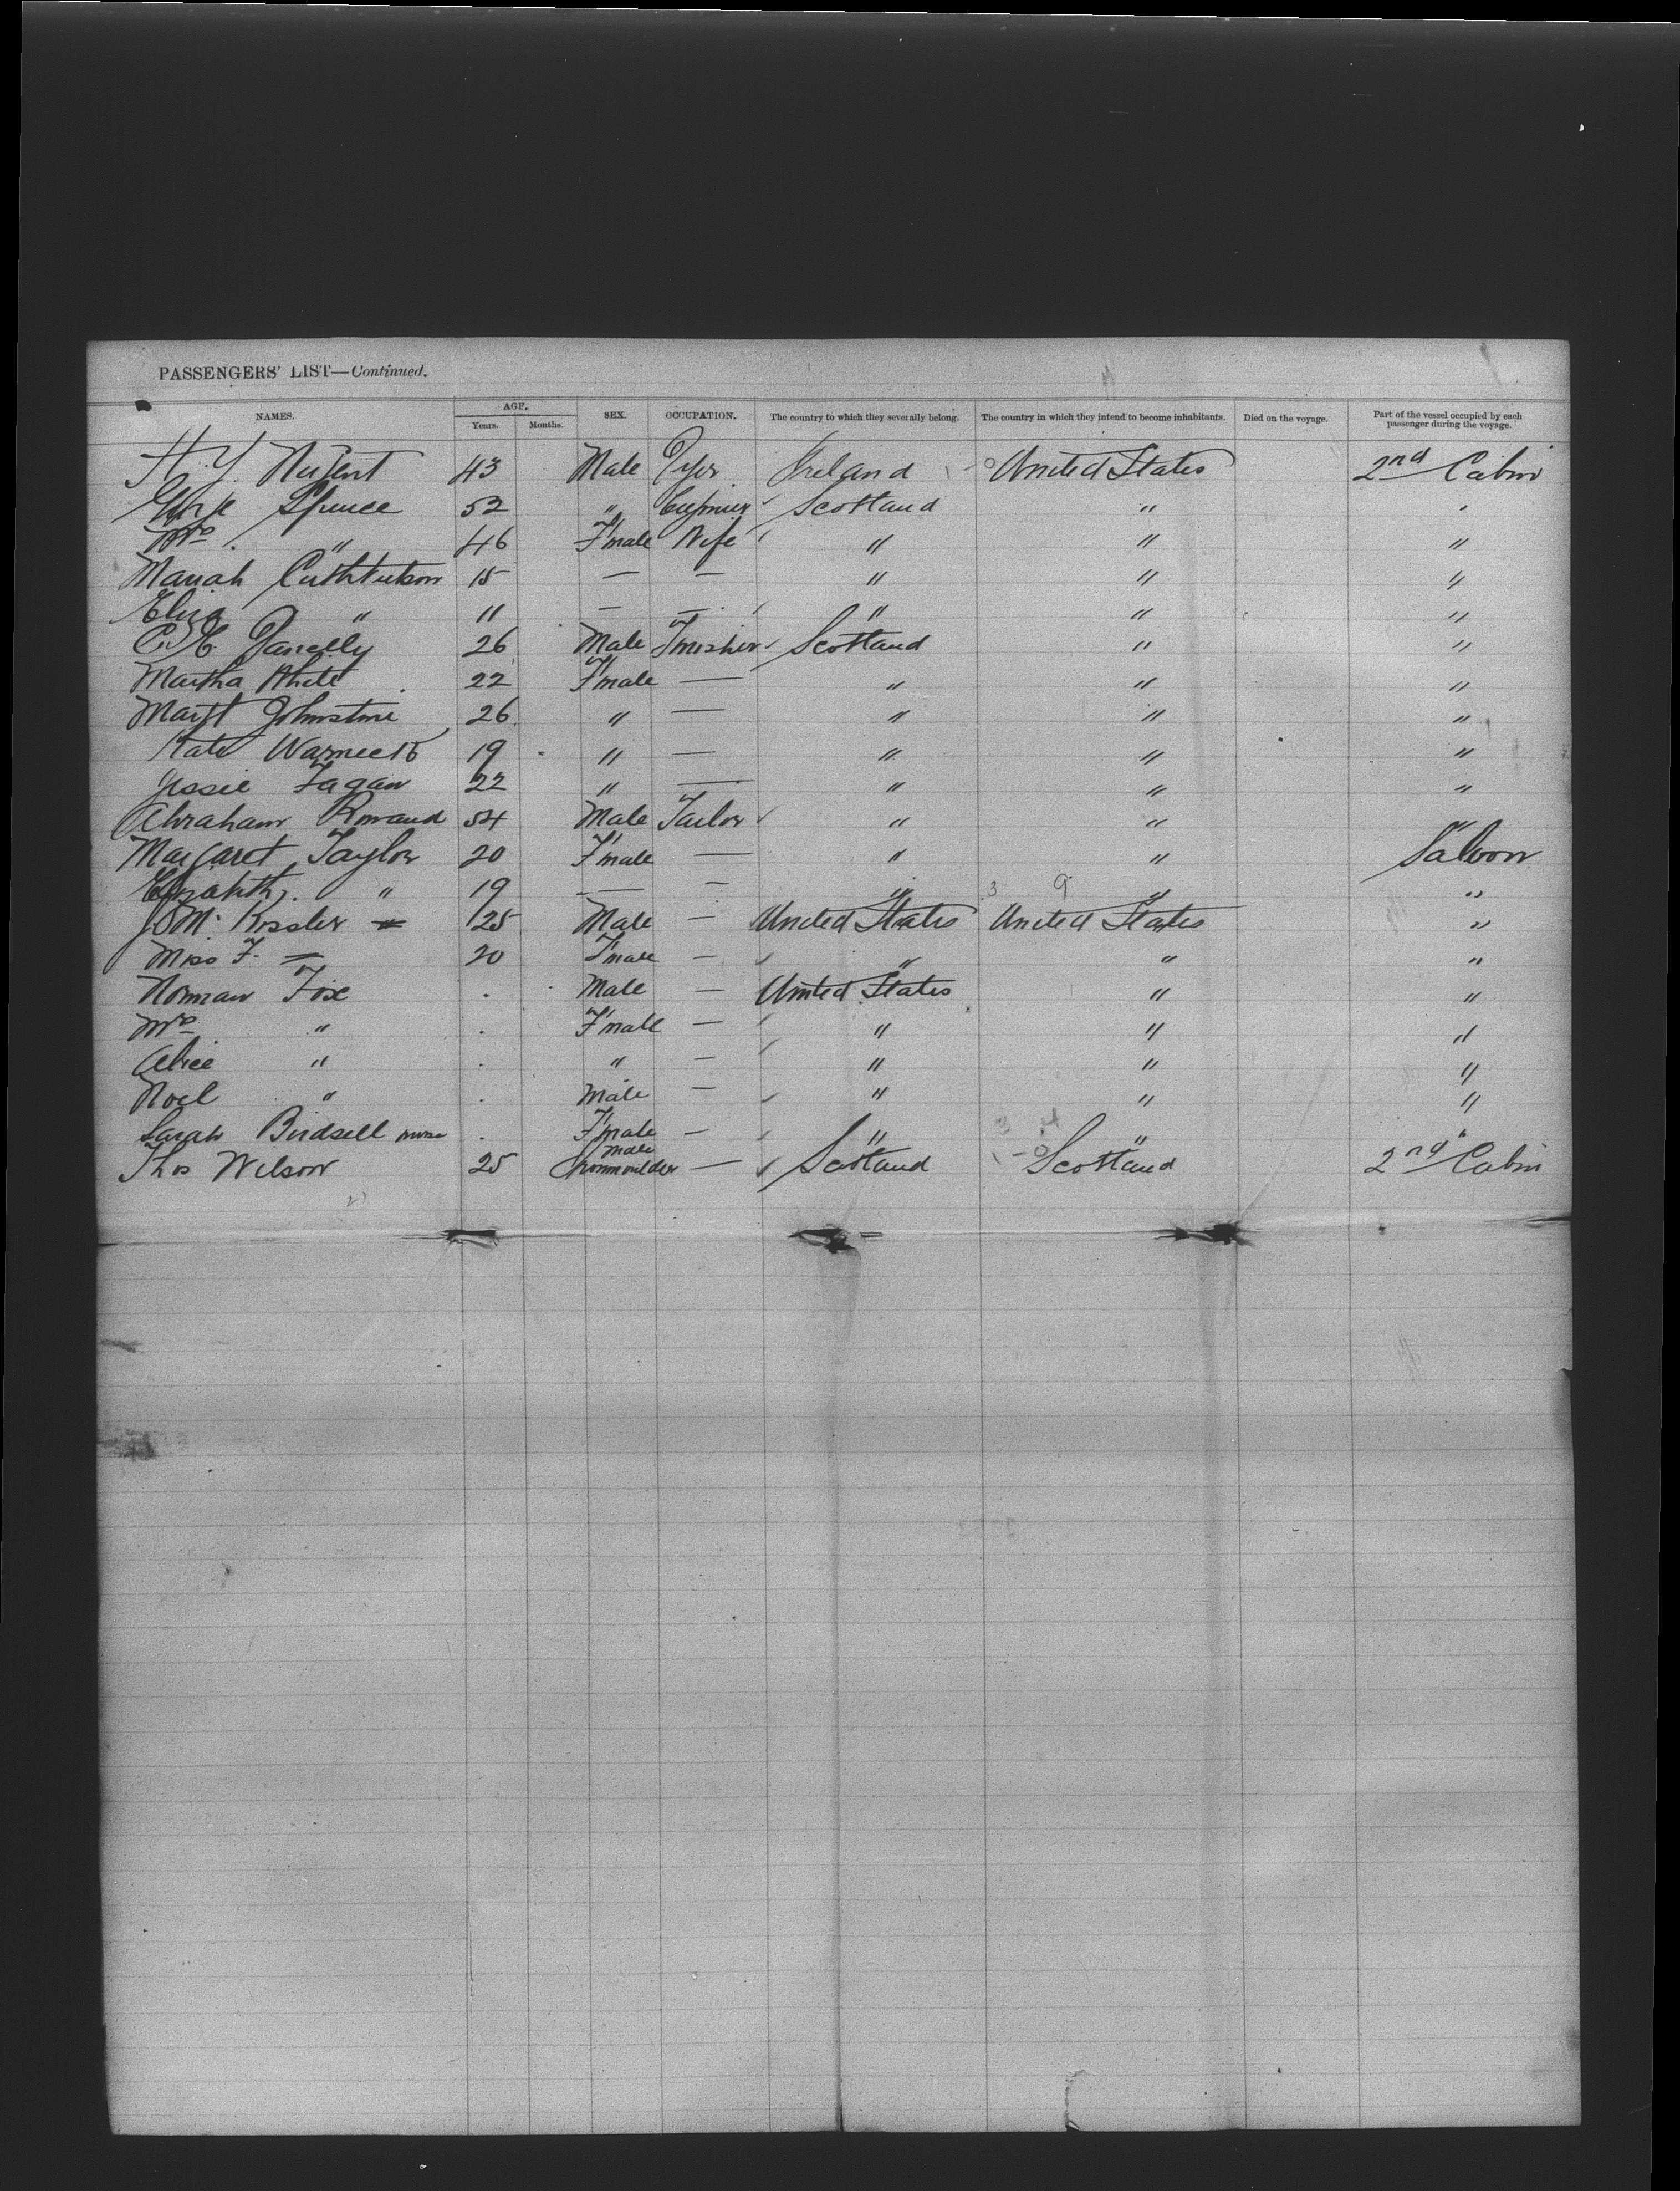 PASSENGERS' LIST—Continued.
NAMES. AGE. Years. Months. SEX. OCCUPATION. The country to which they severally belong. The country in which they intend to become inhabitants. Died on the voyage. Part of the vessel occupied by each passenger during the voyage.
H. Y. Nugent 43 Male Dyer Ireland United States 2nd Cabin
George Spence 52 " Scotland " "
Mrs. " 46 F'male Wife " " "
Mariah 15 — — " " "
Eliza " 11 — — " " "
C. H. Danelly 26 Male Finisher Scotland " "
Martha White 22 F'male — " " "
Margt Johnstone 26 " — " " "
Kate 19 " — " " "
Jessie Fagan 22 " — " " "
Abraham Rowand 54 Male Tailor " " "
Margaret Taylor 20 F'male — " " Saloon
Elizabeth " 19 — — " " "
J. O. Mc Kissler 25 Male — United States United States "
Miss F. = 20 F'male — " " "
Norman Fox . Male — United States " "
Mrs " . F'male — " " "
Alice " . " — " " "
Noel " . Male — " " "
Sarah Birdsell nurse . F'male — " " "
Thos Wilson 25 Male Ironmoulder — Scotland Scotland 2nd Cabin